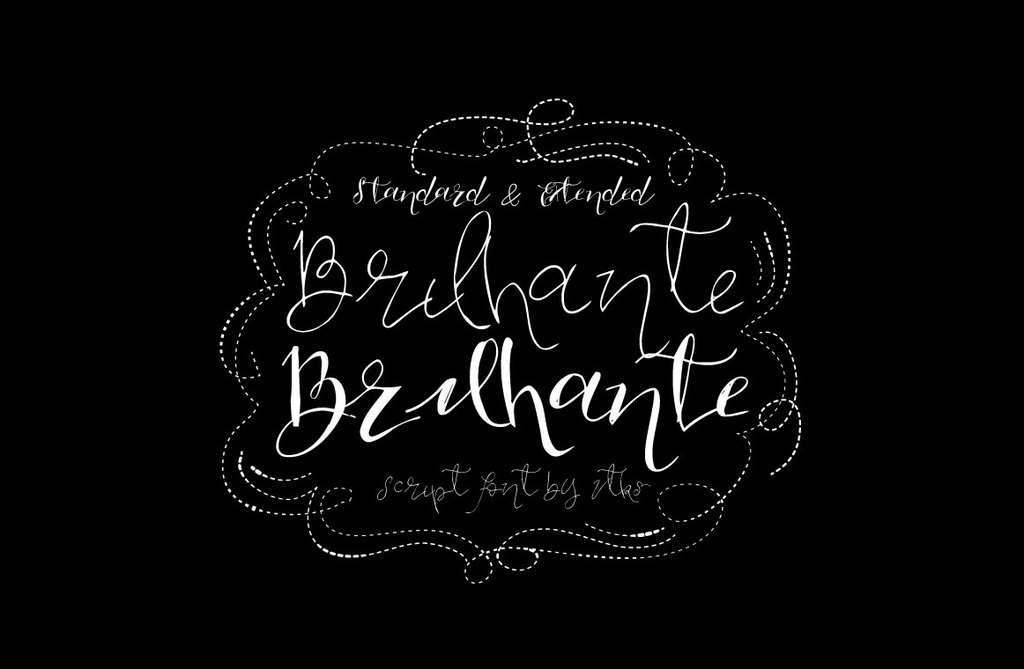 Standard & Extended
Brilhante
Brilhante
script font by vtks